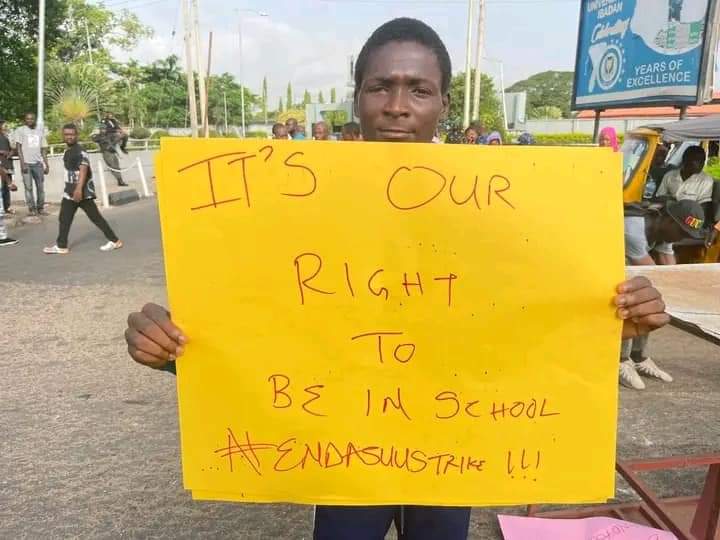 IT'S OUR
RIGHT
TO
BE IN SCHOOL
#ENDASUUSTRIKE !!!
IBADAN
YEARS OF
EXCELLENCE